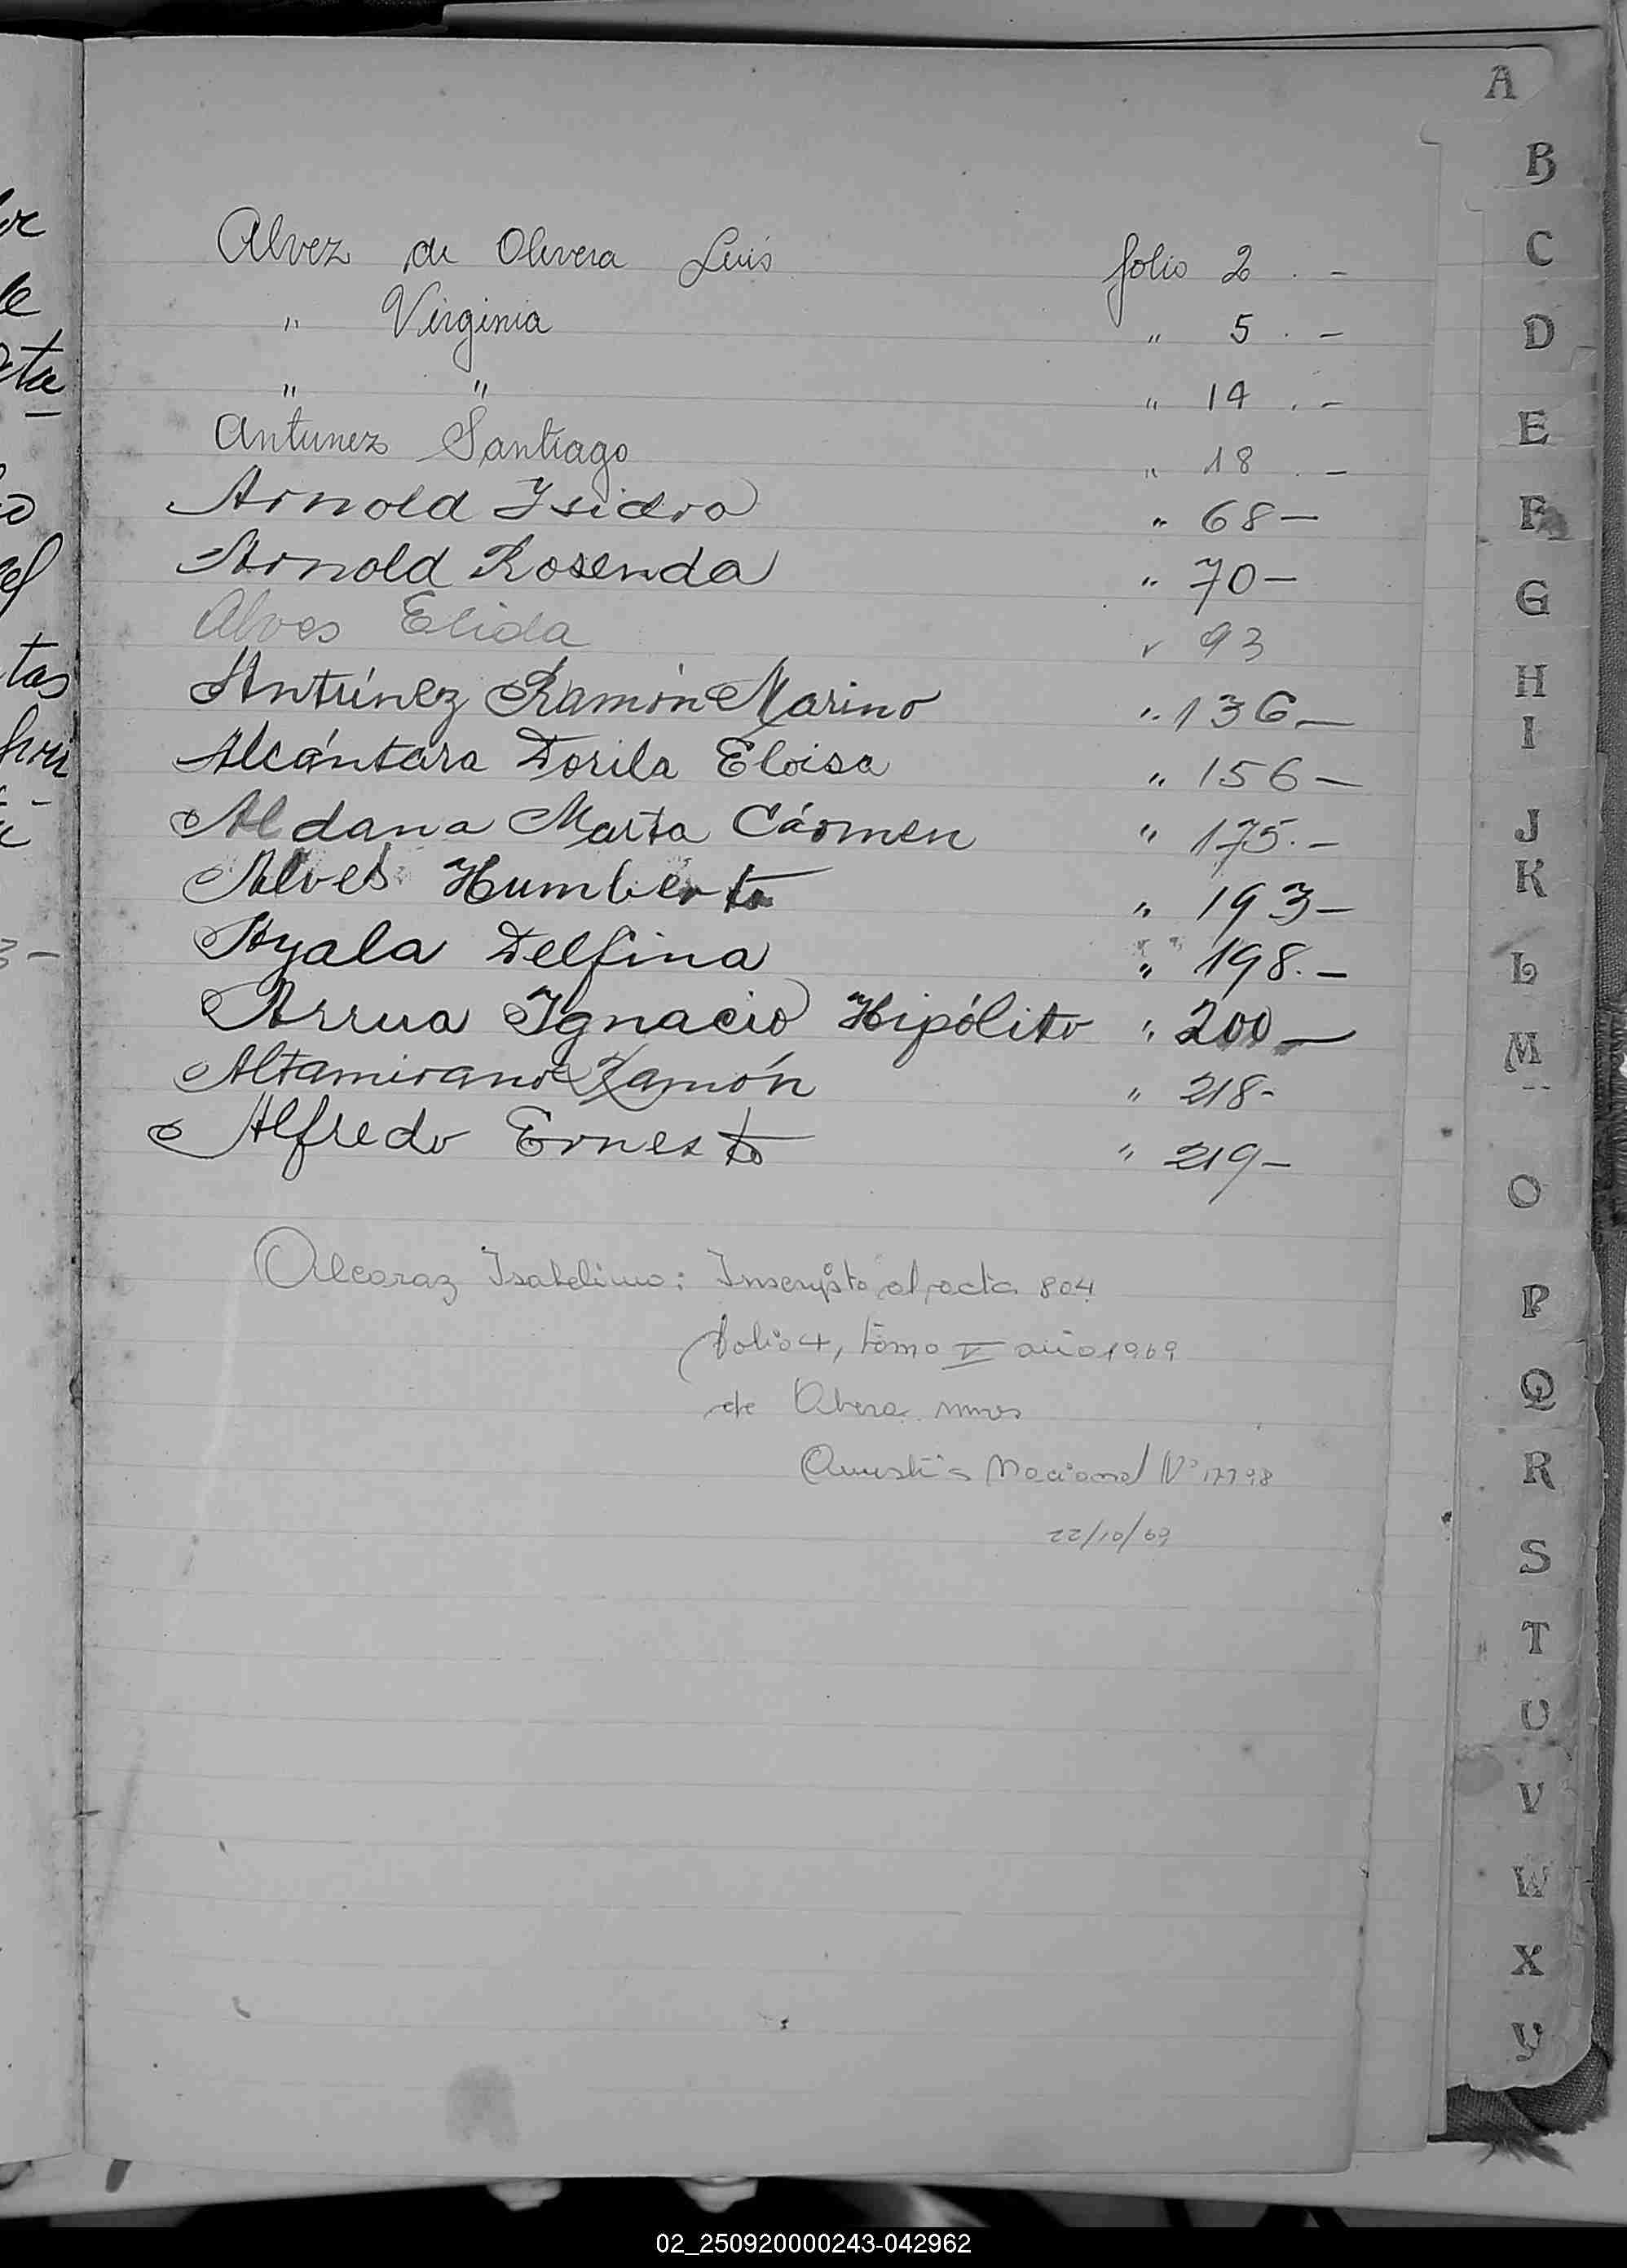 Alvez de Olivera Luis folio 2 . -
" Virginia " 5 . -
" " " 14 . -
Antunez Santiago " 18 . -
Arnold Isidro " 68 -
Arnold Rosenda " 70 -
Alves Elida " 93
Antúnez Ramón Marino " 136 -
Alcántara Dorila Eloisa " 156 -
Aldana Marta Cármen " 175. -
Alves Humberto " 193 -
Ayala Delfina " 198. -
Arrua Ignacio Hipólito " 200 -
Altamirano Ramón " 218 -
Alfredo Ernesto " 219 -
Alcaraz Isabelino: Inscripto al acta 804
folio 4, tomo V año 1969
de Obera mnes
Amnistia Nacional Nº
22/10/69
A
B
C
D
E
F
G
H
I
J
K
L
M
O
P
Q
R
S
T
U
V
W
X
Y
02_250920000243-042962